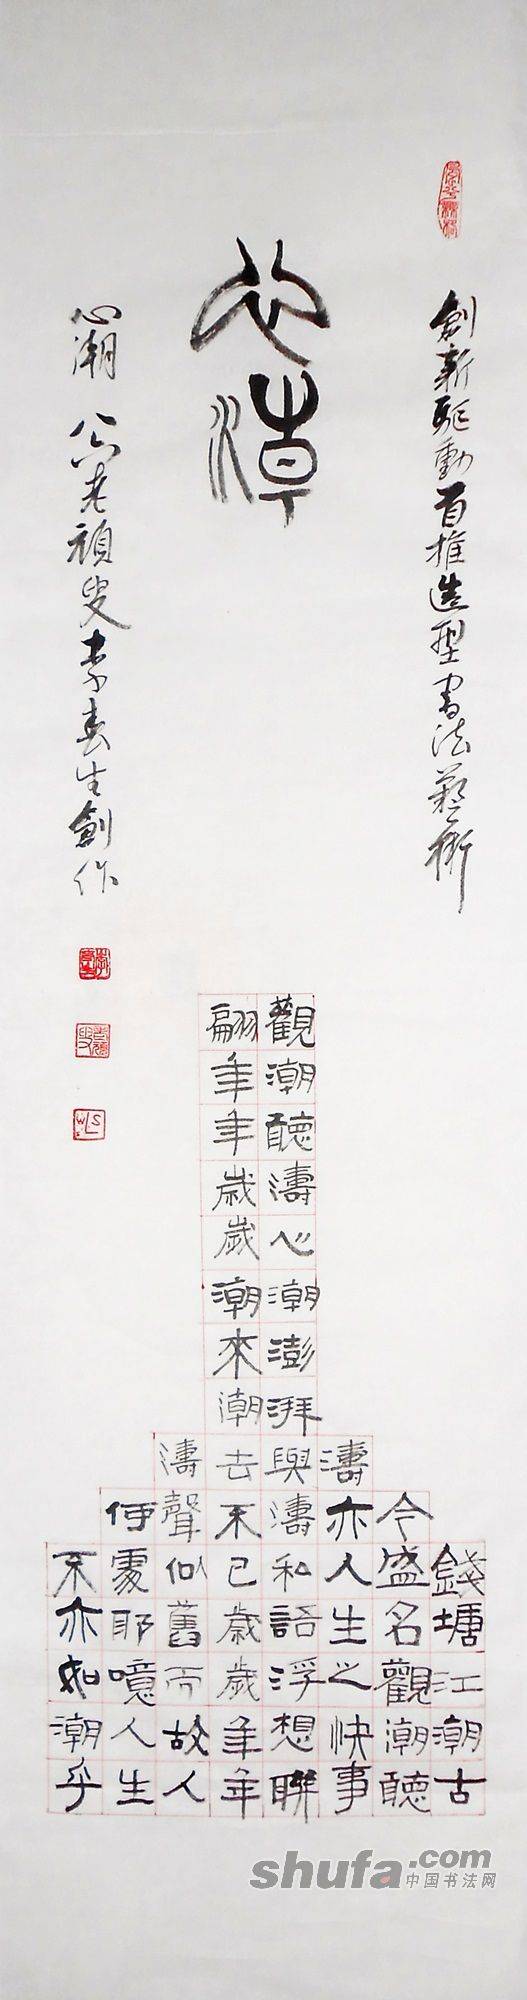 創新驅動首推造型書法藝術
心潮
錢塘江潮古
今盛名觀潮聽
濤亦人生之快事
觀潮聽濤心潮澎湃與濤私語浮想聯
翩年年歲歲潮來潮去不已歲歲年年
濤聲似舊而故人
何處耶噫人生
不亦如潮乎
心潮 老頑叟李春生創作
shufa.com
中国书法网